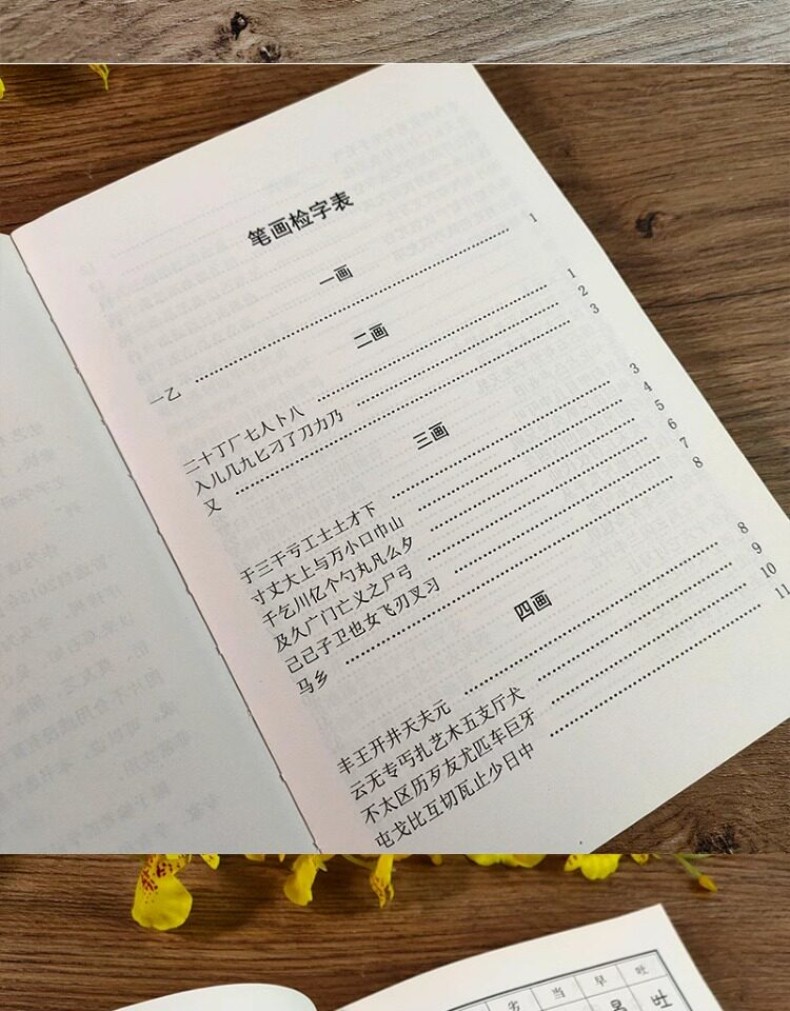 笔画检字表
一画
一乙 1
二画
二十丁厂七人卜八 1
入儿几九匕刁了刀力乃 2
又 3
三画
于三干亏工土士才下 3
寸丈大上与万小口巾山 4
千乞川亿个勺丸凡么夕 5
及久广门亡义之尸弓 6
己已子卫也女飞刃叉习 7
马乡 8
四画
丰王开井天夫元 8
云无专丐扎艺木五支厅犬 9
不太区历歹友尤匹车巨牙 10
屯戈比互切瓦止少日中 11
劣 当 早 吐
吐